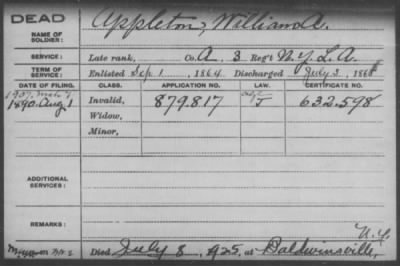 DEAD
NAME OF SOLDIER: Appleton, William A.
SERVICE: Late rank, Co. A. 3 Reg't N.Y. L. A.
TERM OF SERVICE: Enlisted Sep. 1, 1864. Discharged July 3, 1865
DATE OF FILING. CLASS. APPLICATION NO. LAW. CERTIFICATE NO.
1907
1890 Aug 1 Invalid, 879.817 J 632.598
Widow,
Minor,
ADDITIONAL SERVICES:
REMARKS:
N.Y.
Died July 8, 1925, at Baldwinsville,